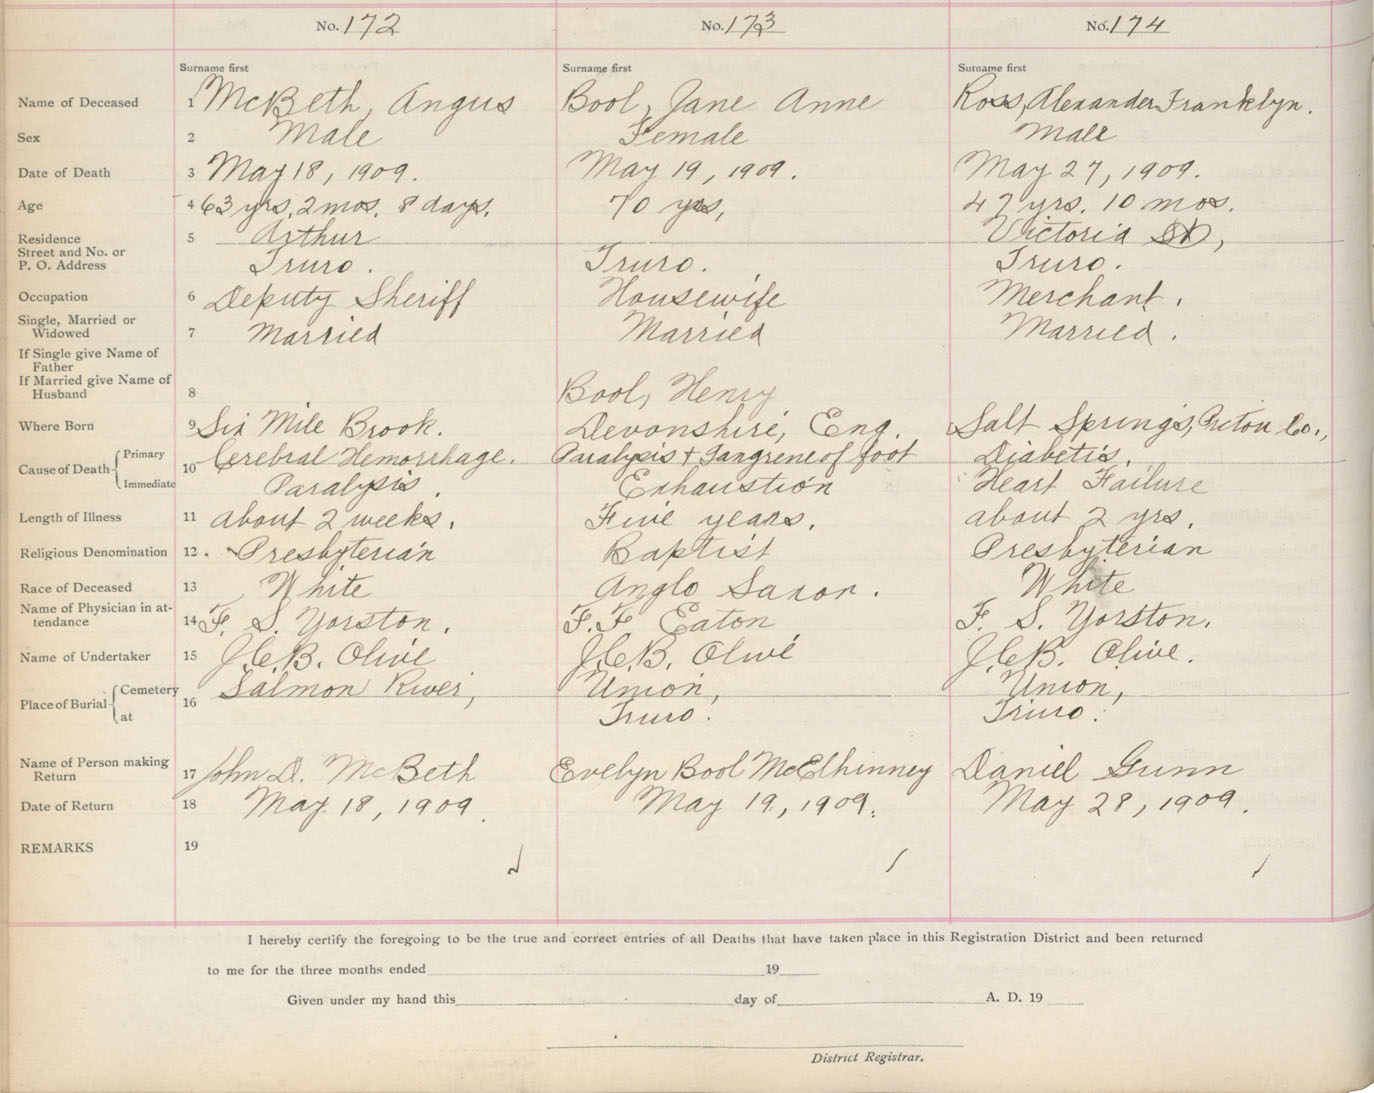 No. 172 No. 173 No. 174
Surname first Surname first Surname first
Name of Deceased 1 McBeth, Angus Bool, Jane Anne Ross, Alexander Franklyn.
Sex 2 Male Female Male
Date of Death 3 May 18, 1909. May 19, 1909. May 27, 1909.
Age 4 63 yrs. 2 mos. 8 days. 70 yrs, 47 yrs. 10 mos.
Residence 5 Arthur Victoria St,
Street and No. or
P. O. Address Truro. Truro. Truro.
Occupation 6 Deputy Sheriff Housewife Merchant.
Single, Married or
Widowed 7 Married Married Married.
If Single give Name of
Father
If Married give Name of
Husband 8 Bool, Henry
Where Born 9 Six Mile Brook. Devonshire, Eng. Salt Springs, Pictou Co.,
Cause of Death Primary 10 Cerebral Hemorrhage. Paralysis + Gangrene of foot Diabetis.
Immediate Paralysis. Exhaustion Heart Failure
Length of Illness 11 about 2 weeks. Five years. about 2 yrs.
Religious Denomination 12 Presbyterian Baptist Presbyterian
Race of Deceased 13 White Anglo Saxon. White
Name of Physician in at-
tendance 14 F. S. Yorston. F. F. Eaton F. S. Yorston.
Name of Undertaker 15 J.C.B. Olive J.C.B. Olive J.C.B. Olive.
Place of Burial Cemetery 16 Salmon River, Union, Union,
at Truro. Truro.
Name of Person making
Return 17 John D. McBeth Evelyn Bool McElhinney Daniel Gunn
Date of Return 18 May 18, 1909. May 19, 1909. May 28, 1909.
REMARKS 19
I hereby certify the foregoing to be the true and correct entries of all Deaths that have taken place in this Registration District and been returned
to me for the three months ended 19
Given under my hand this day of A. D. 19
District Registrar.